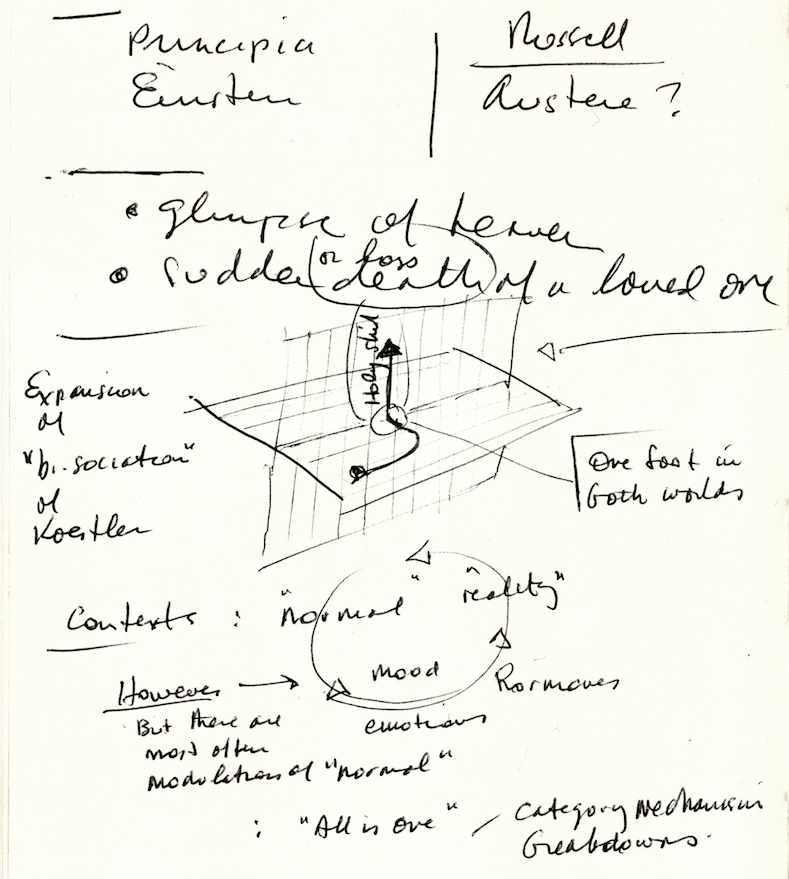 Principia
Einstein
Russell
Austere?
• glimpse of heaven
• sudden death of a loved one
or loss
Holy shit
Expansion
of
"bi-sociation"
of
Koestler
One foot in
both worlds
Contexts : "normal" "reality"
However
mood
Hormones
emotions
But there are
most often
modulations of "normal"
: "All is one" / category mechanism
breakdowns.